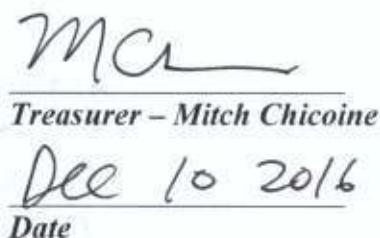 MC
Treasurer – Mitch Chicoine
Dec 10 2016
Date